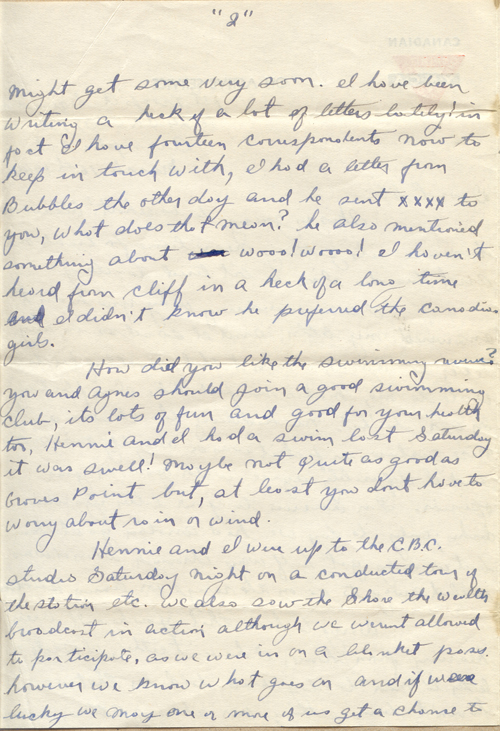 "2"
CANADIAN
might get some very soon. I have been
writing a heck of a lot of letters lately! in
fact I have fourteen correspondents now to
keep in touch with, I had a letter from
Bubbles the other day and he sent xxxx to
you, what does that mean? he also mentioned
something about wooo! woooo! I haven't
heard from Cliff in a heck of a long time
I didn't know he preferred the Canadian
girls.
How did you like the swimming
you and Agnes should join a good swimming
club, its lots of fun and good for your health
too, Hennie and I had a swim last Saturday
it was swell! Maybe not quite as good as
Groves Point but, at least you dont have to
worry about rain or wind.
Hennie and I were up to the C.B.C.
studio Saturday night on a conducted tour of
the station etc. we also saw the Share the Wealth
broadcast in action although we werent allowed
to participate, as we were in on a blanket pass.
however we know what goes on and if were
lucky we may one or more of us get a chance to